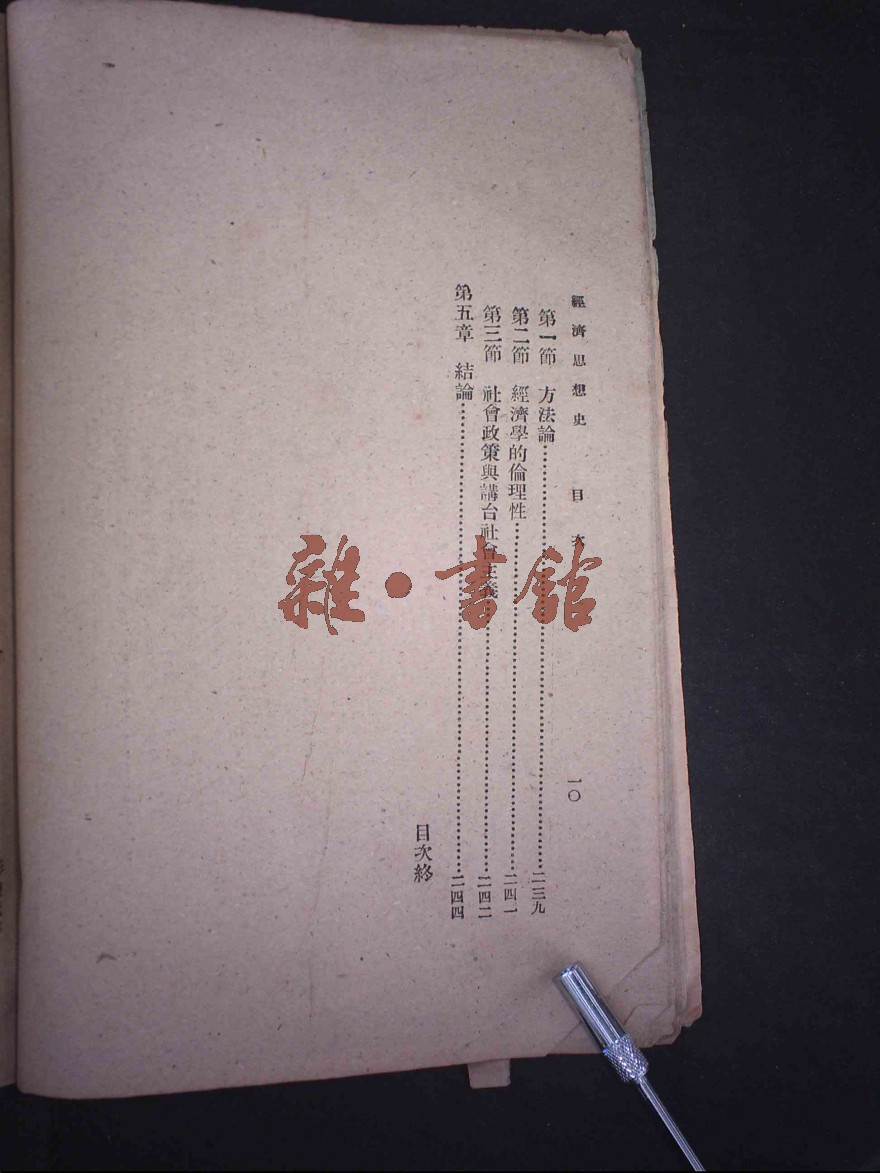 經濟思想史 目次 一〇
第一節 方法論……二三九
第二節 經濟學的倫理性……二四一
第三節 社會政策與講台社會主義……二四二
第五章 結論……二四四
目次終
雜·書館